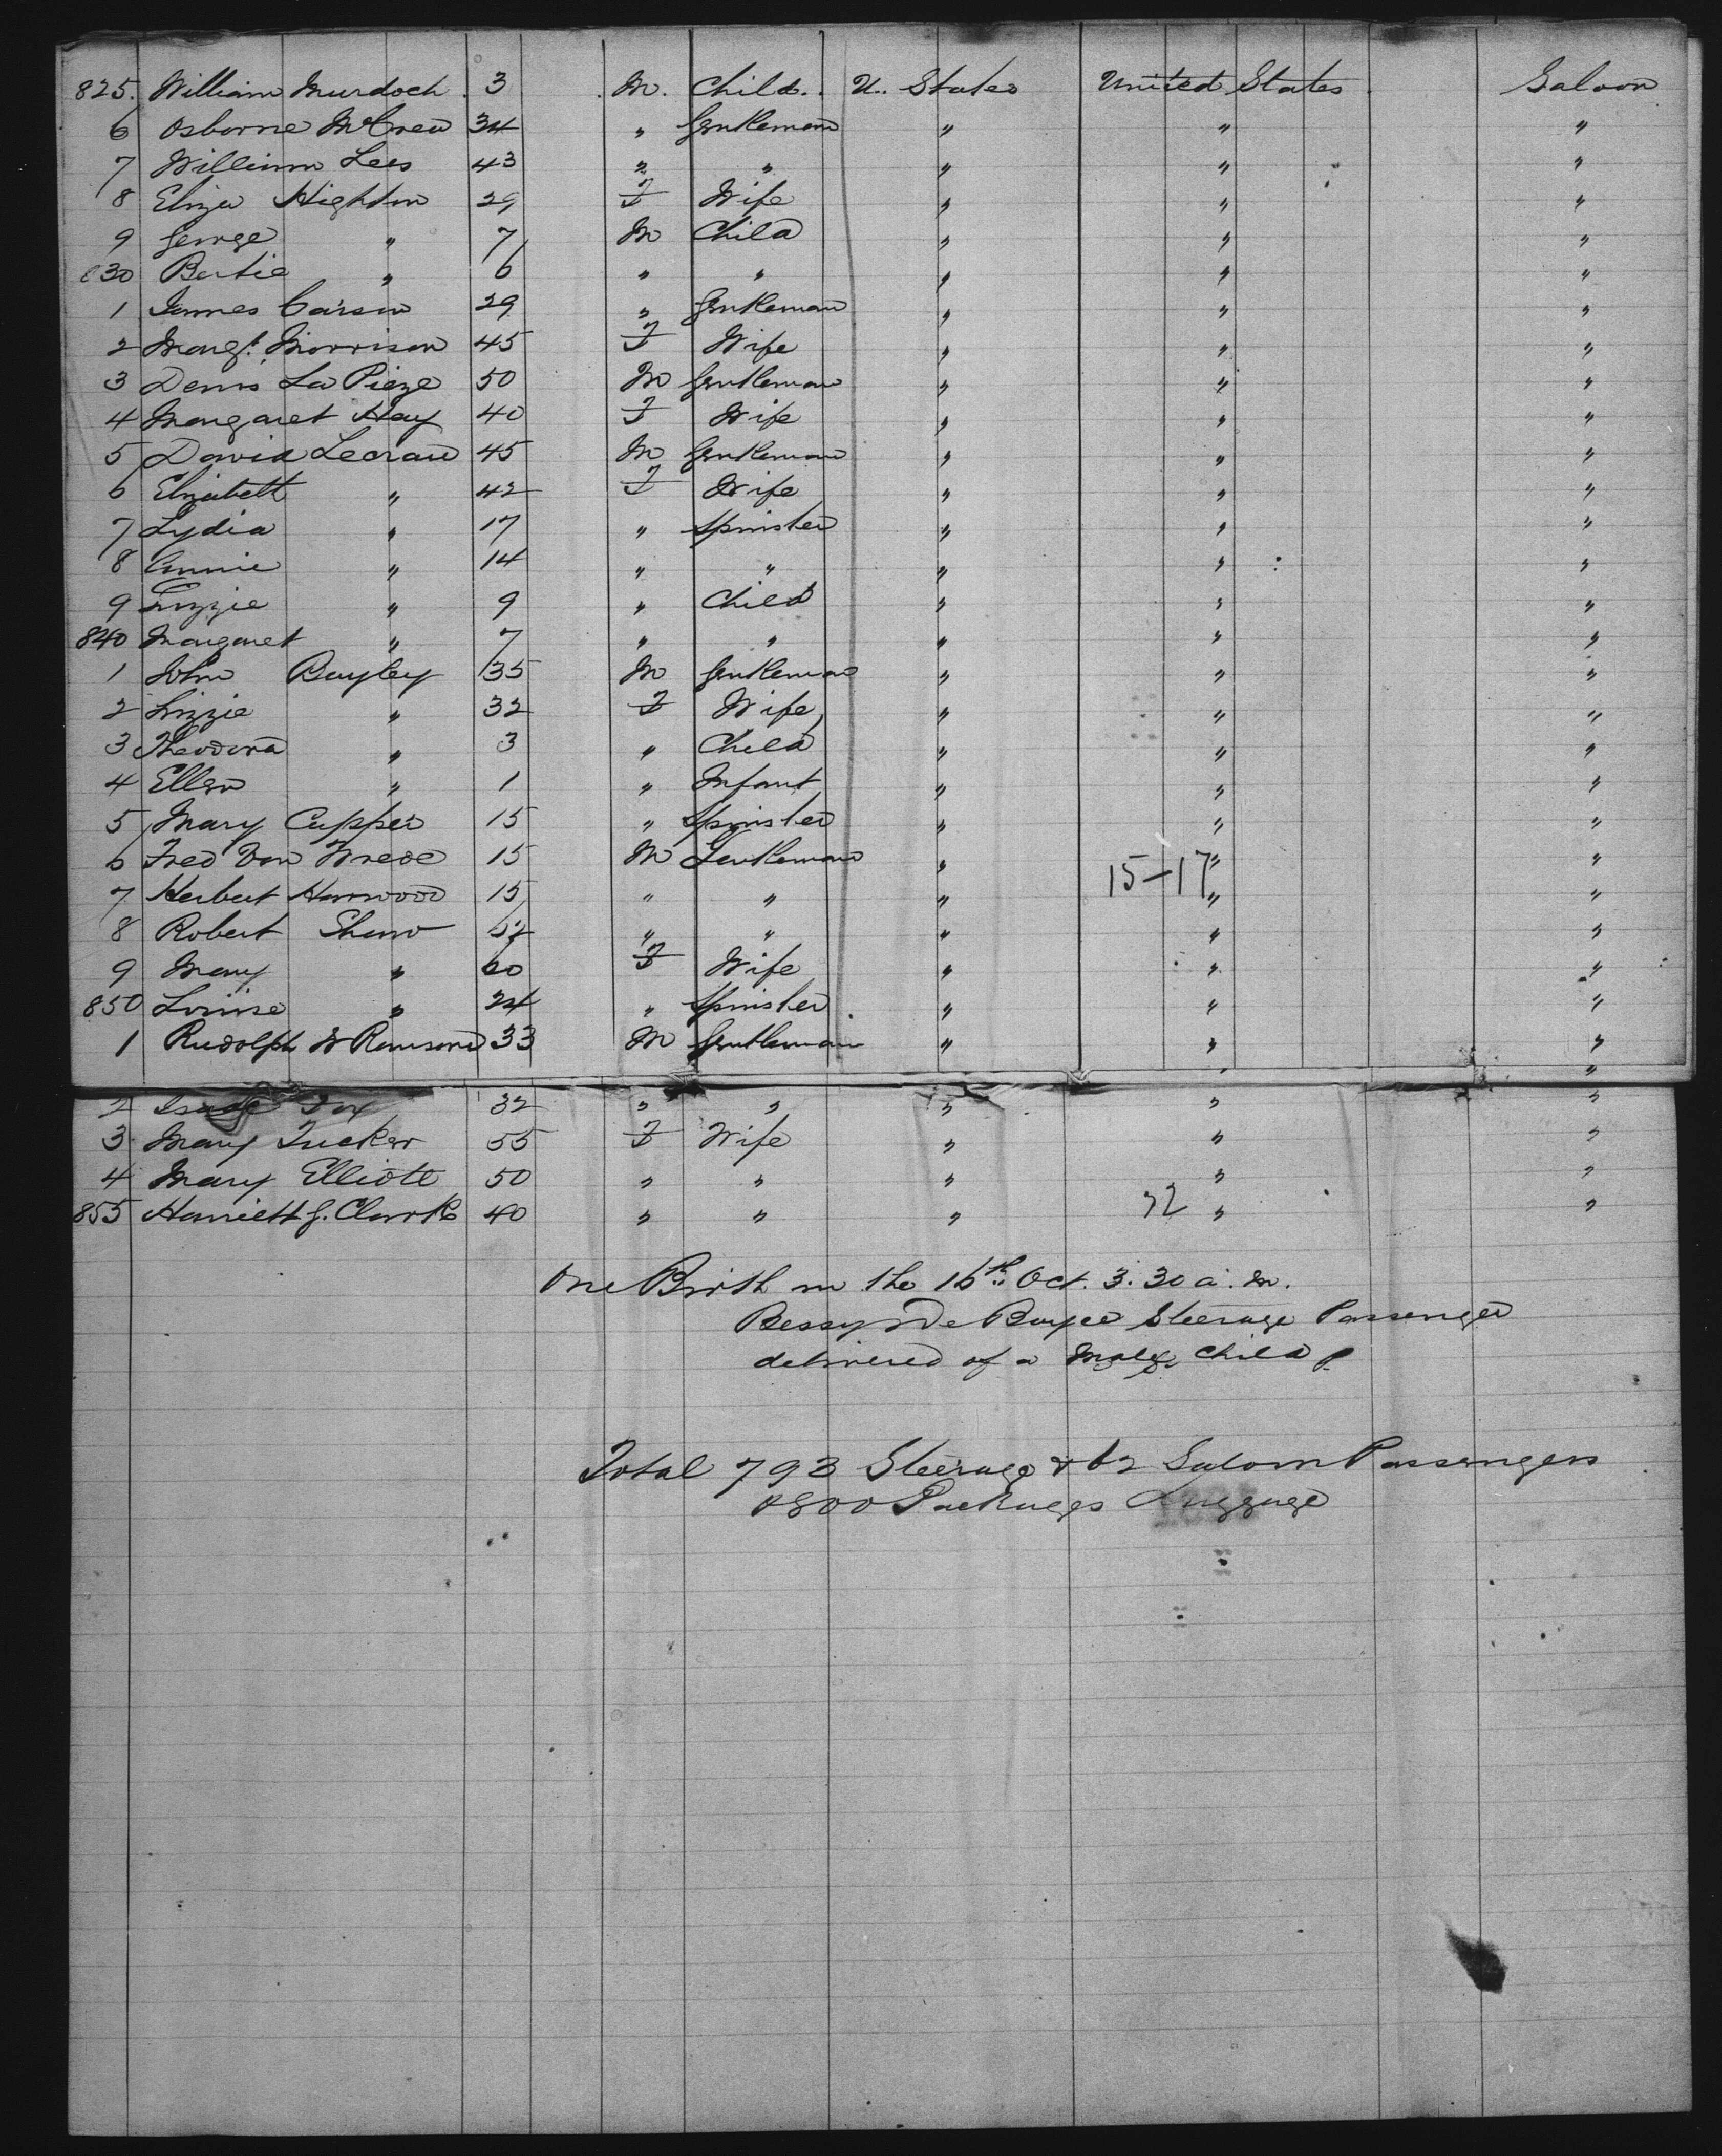 825. William Murdoch 3 M. Child. U. States United States Saloon
6 Osborne McCrea 34 " Gentleman " " "
7 William Lees 43 " " " " "
8 Eliza Highton 29 F Wife " " "
9 George " 7 M Child " " "
830 Bertie " 6 " " " " "
1 James Carson 29 " Gentleman " " "
2 Margt. Morrison 45 F Wife " " "
3 Denis La Pieze 50 M Gentleman " " "
4 Margaret Hay 40 F Wife " " "
5 David Lecraw 45 M Gentleman " " "
6 Elizabett " 42 F Wife " " "
7 Lydia " 17 " Spinster " " "
8 Annie " 14 " " " " "
9 Lizzie " 9 " Child " " "
840 Margaret " 7 " " " " "
1 John Bayley 35 M Gentleman " " "
2 Lizzie " 32 F Wife " " "
3 Theodora " 3 " Child " " "
4 Ellen " 1 " Infant " " "
5 Mary Cupper 15 " Spinster " " "
6 Fred Von Wrede 15 M Gentleman " " "
7 Herbert Harwood 15 " " " 15-17 " "
8 Robert Shaw " " " " "
9 Mary " 60 F Wife " " "
850 Louise " 24 " Spinster " " "
1 Rudolph W Rawson 33 M Gentleman " " "
2 Fox 32 " " " " "
3 Mary Tucker 55 F Wife " " "
4 Mary Elliott 50 " " " " "
855 Harriett G. Clark 40 " " " 32 " "
One Birth on the 16th Oct. 3.30 a.m.
Bessy De Boyce Steerage Passenger
delivered of a Male Child
Total 793 Steerage & 62 Saloon Passengers
&800 Packages Luggage